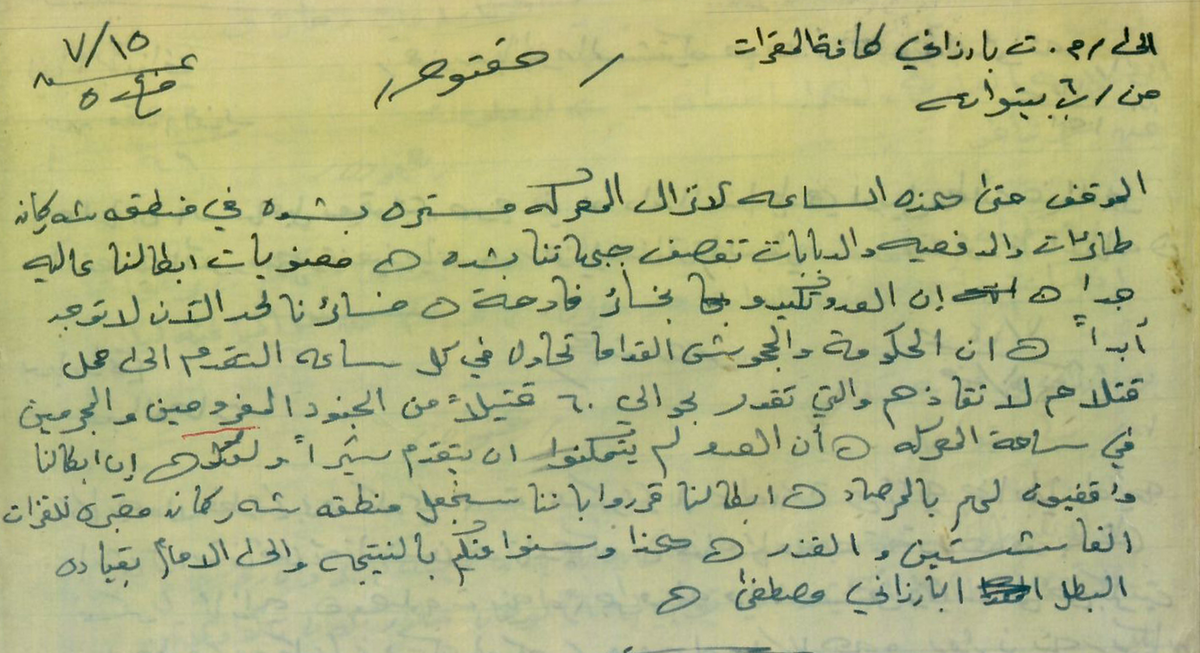 الى / م. ت بارزاني كافة المقرات
/ مفتوح /
١٥/٧
من / ق ٦ بيتواته
الموقف حتى هذه الساعه لاتزال المعركه مستمره بشده في منطقه شه ركان
طائرات والدفعيه والدبابات تقصف جبهاتنا بشده ه معنويات ابطالنا عاليه
جداً ه إن العدو تكبدو بخسائر فادحة ه خسائرنا لحد الآن لاتوجد
أبداً ه ان الحكومة والجحوش القدامى تحاول في كل ساعه التقدم الى محل
قتلاهم لانقاذهم والتي تقدر بحوالي ٦٠ قتيلاً من الجنود و المجرمين
في ساحة المعركه ه أن العدو لم يتمكنوا ان يتقدم شبراً ه إن ابطالنا
واقفيون لهم بالمرصاد ه ابطالنا قرروا باننا سنجعل منطقه شه ركان مقبره للقوات
الفاشستين و القذر ه هذا وسنوافكيم بالنتيجه والى الامام بقياده
البطل ابارزاني مصطفى ه